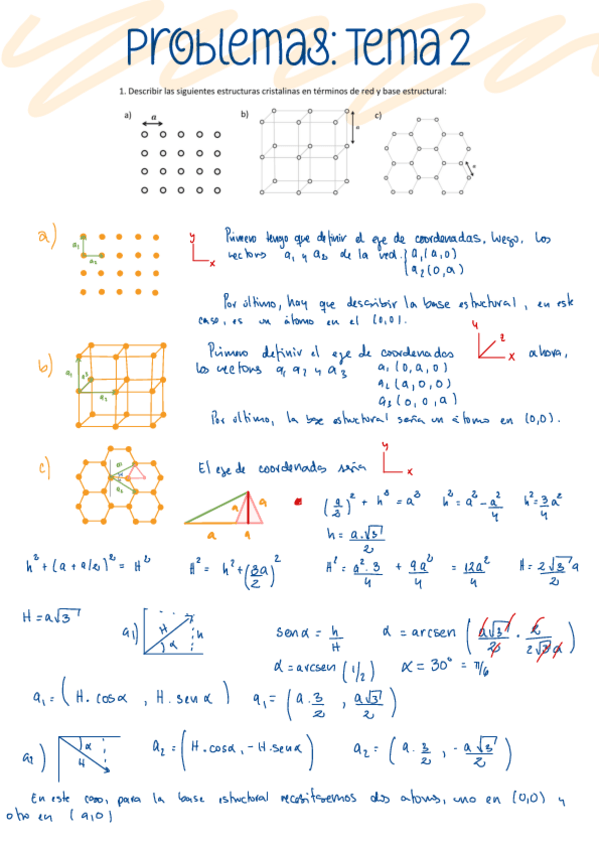 Problemas: Tema 2
1. Describir las siguientes estructuras cristalinas en términos de red y base estructural:
a) a b) a c) a
a) a₁ a₂ y x Primero tengo que definir el eje de coordenadas, luego, los
vectors a₁ y a₂ de la red. { a₁(a,0)
a₂(0,a)
Por último, hay que describir la base estructural, en este
caso, es un átomo en el (0,0).
b) a₁ a₃ a₂ Primero definir el eje de coordenadas y z x ahora,
los vectors a₁ a₂ y a₃ a₁(0,a,0)
a₂(a,0,0)
a₃(0,0,a)
Por último, la base estructural sería un átomo en (0,0).
c) a₁ a₂ El eje de coordenadas sería y x
a a a (a/2)² + h² = a² h² = a² - a²/4 h² = 3/4 a²
h = a·√3/2
h² + (a + a/2)² = H² H² = h² + (3a/2)² H² = a²·3/4 + 9a²/4 = 12a²/4 H = 2√3 a/2
H = a√3
a₁) H α h sen α = h/H α = arcsen (a√3/2 · 2/2√3a)
α = arcsen (1/2) α = 30° = π/6
a₁ = (H·cosα, H·senα) a₁ = (a·3/2, a√3/2)
a₂) α H a₂ = (H·cosα, -H·senα) a₂ = (a·3/2, -a√3/2)
En este caso, para la base estructural necesitaremos dos átomos, uno en (0,0) y
otro en (a,0)